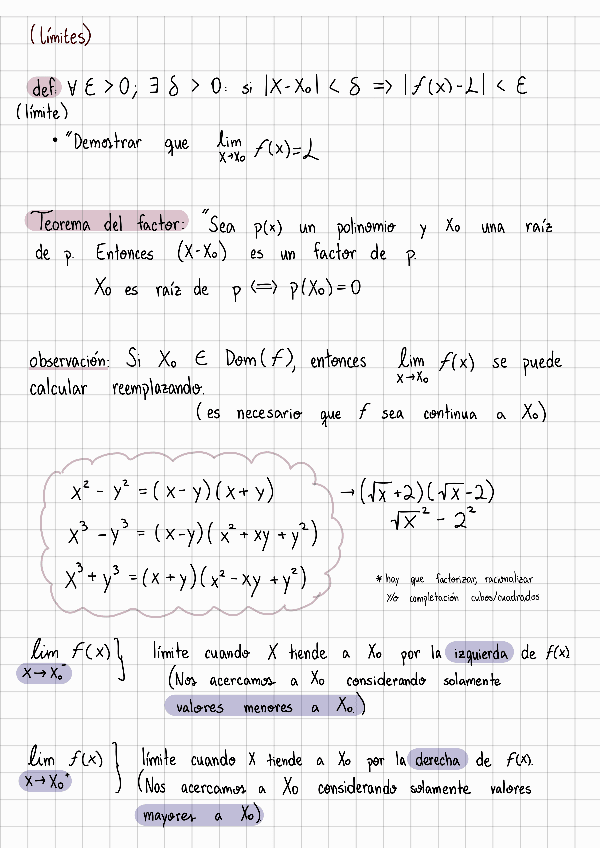 (límites)
def: ∀ ε > 0; ∃ δ > 0: si |x-x₀| < δ => |f(x)-L| < ε
(límite)
• "Demostrar que lim f(x)=L
x→x₀
Teorema del factor: "Sea p(x) un polinomio y x₀ una raíz
de p. Entonces (x-x₀) es un factor de p.
x₀ es raíz de p <=> p(x₀)=0
observación: Si x₀ ∈ Dom(f), entonces lim f(x) se puede
x→x₀
calcular reemplazando.
(es necesario que f sea continua a x₀)
x² - y² = (x-y)(x+y) → (√x+2)(√x-2)
√x² - 2²
x³ - y³ = (x-y)(x² + xy + y²)
x³ + y³ = (x+y)(x² - xy + y²)
* hay que factorizar, racionalizar
y/o completación cubos/cuadrados
lim f(x) } límite cuando x tiende a x₀ por la izquierda de f(x)
x→x₀⁻ (Nos acercamos a x₀ considerando solamente
valores menores a x₀.)
lim f(x) } límite cuando x tiende a x₀ por la derecha de f(x).
x→x₀⁺ (Nos acercamos a x₀ considerando solamente valores
mayores a x₀).